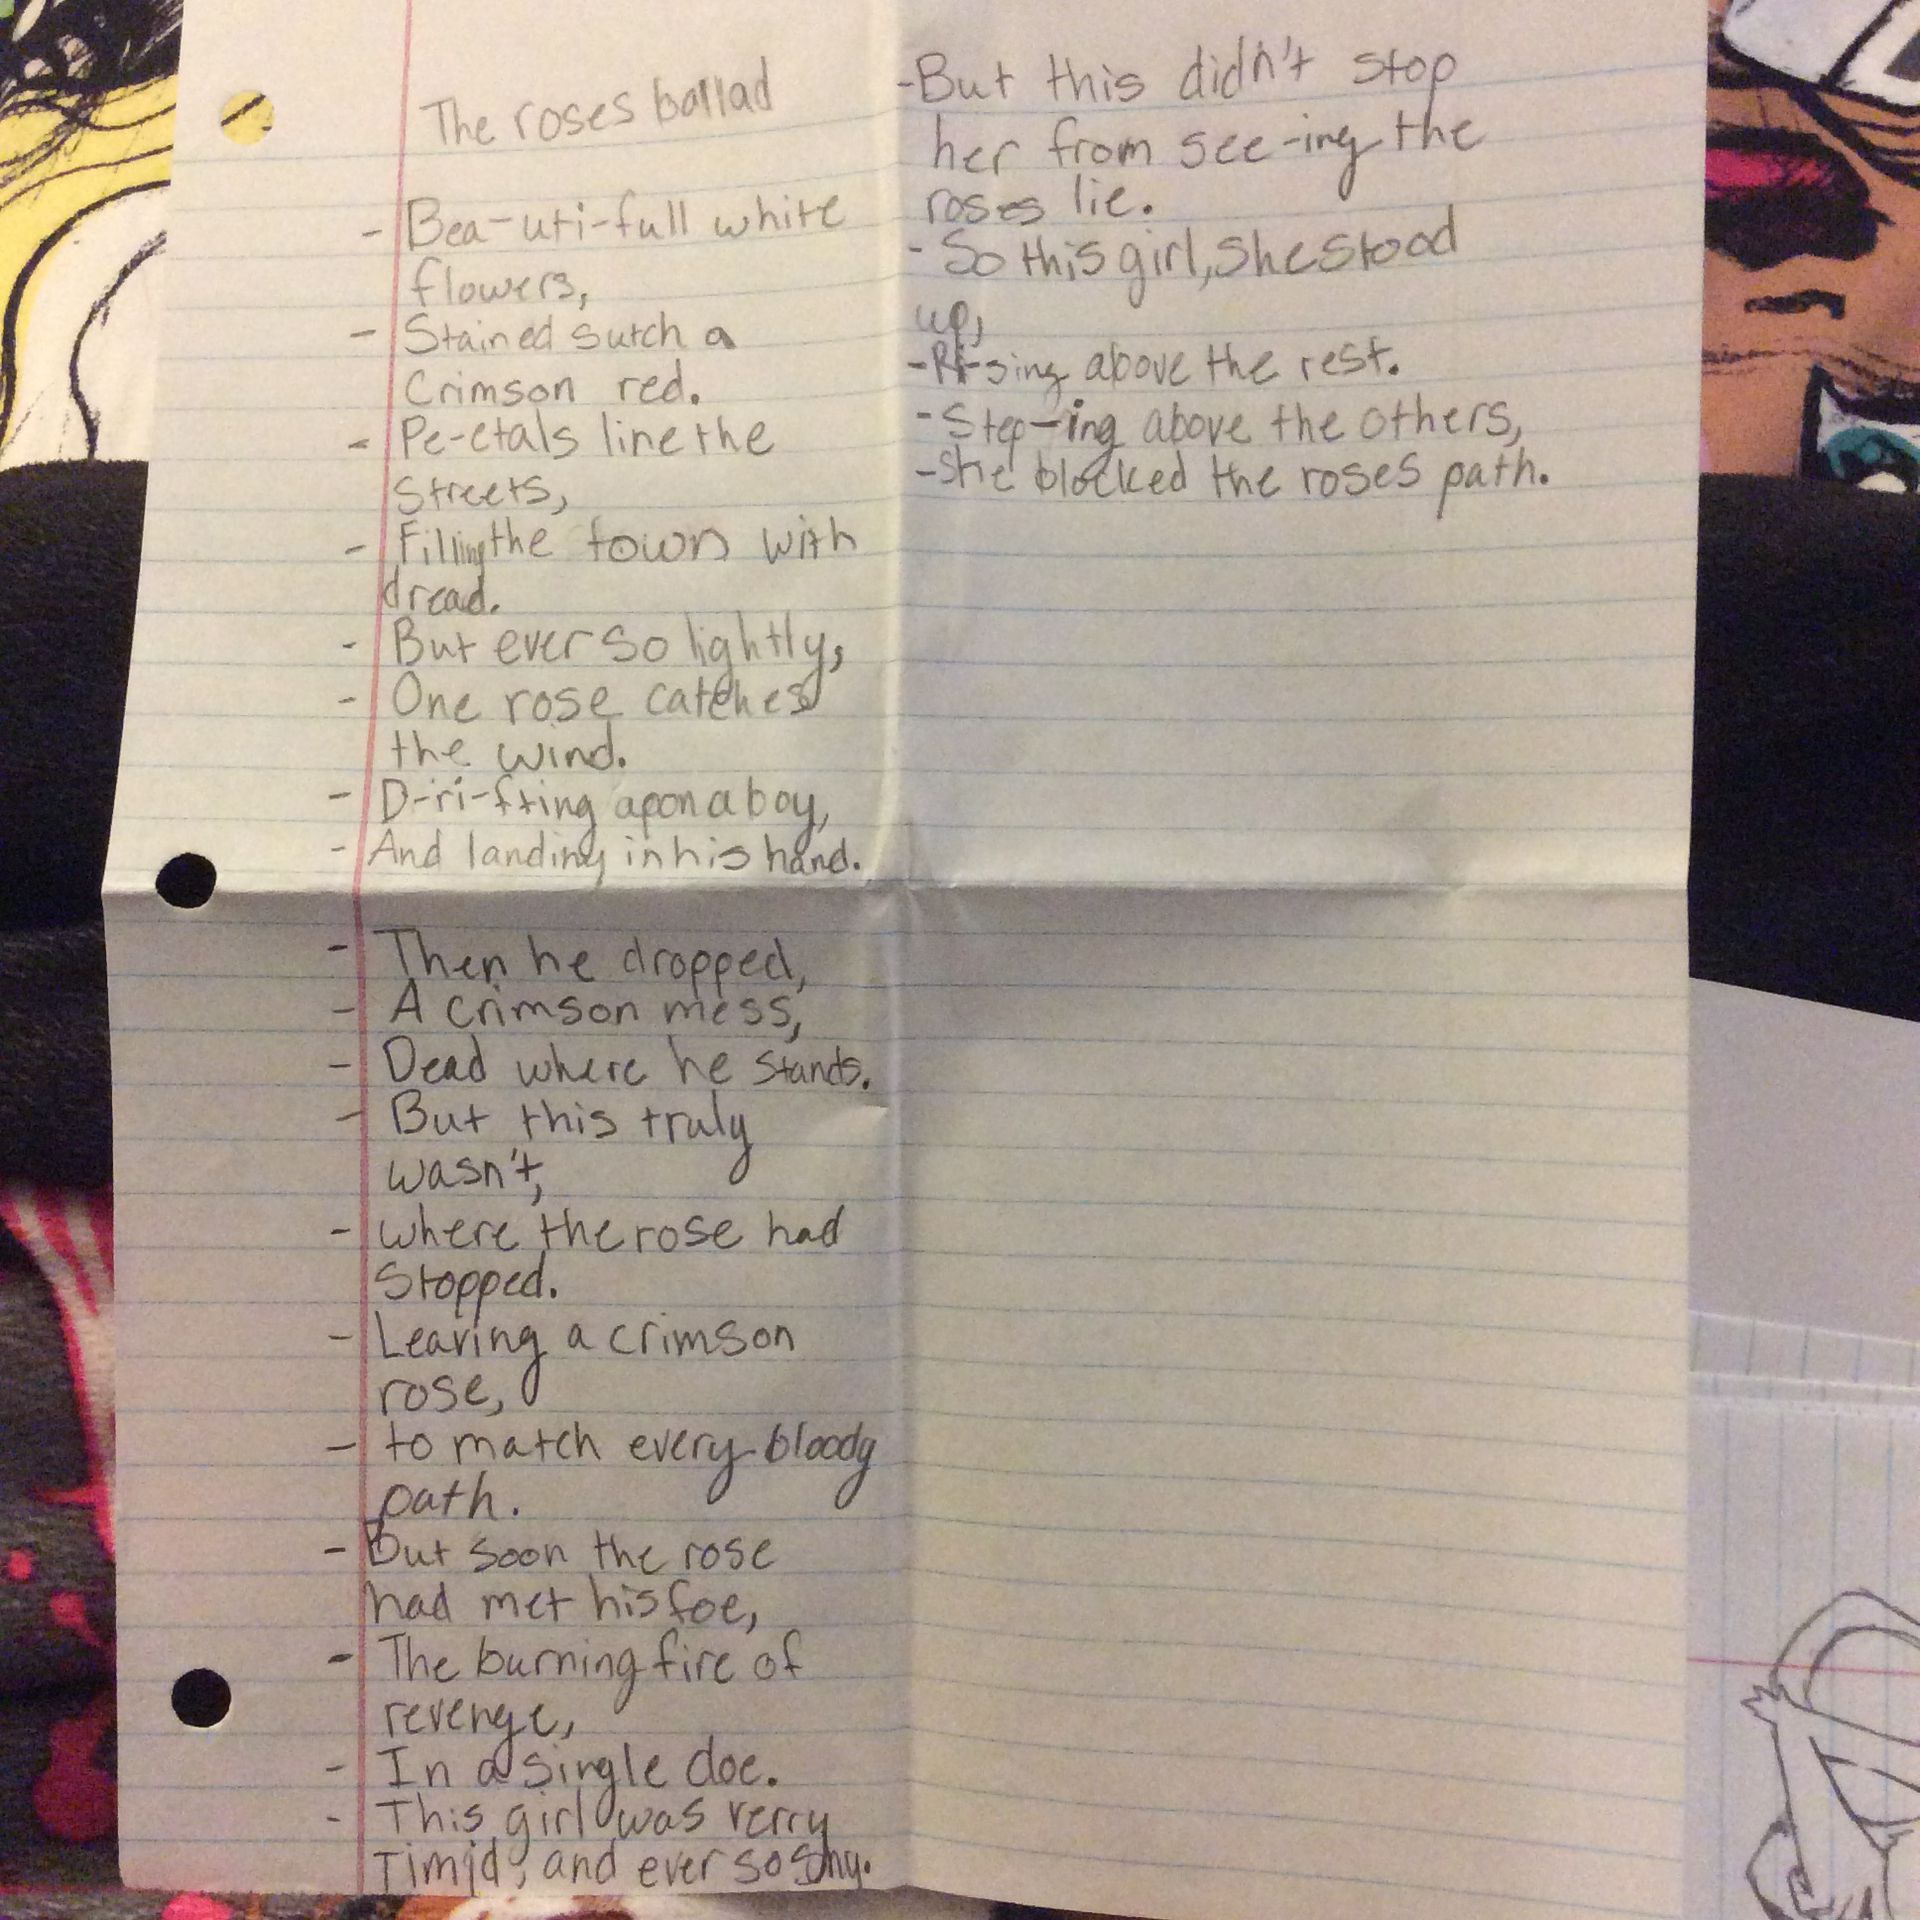 The roses ballad
- Bea-uti-full white
flowers,
- Stained sutch a
Crimson red.
- Pe-etals line the
Streets,
- Filling the town with
dread.
- But ever so lightly,
- One rose catches
the wind.
- D-ri-fting apon a boy,
- And landing in his hand.
- Then he dropped,
- A crimson mess,
- Dead where he stands.
- But this truly
wasn't,
- where the rose had
Stopped.
- Leaving a crimson
rose,
- to match every bloody
path.
- But soon the rose
had met his foe,
- The burning fire of
revenge,
- In a single doe.
- This girl was verry
Timid, and ever so shy.
- But this didn't stop
her from see-ing the
roses lie.
- So this girl, she stood
up,
- Ri-sing above the rest.
- Step-ing above the others,
- She blocked the roses path.